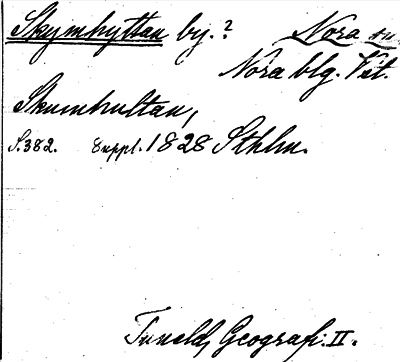 Skymhyttan by.? Nora sn
Nora blg. Vst.
Skumhultan,
S.382. Suppl. 1828 Sthlm.
Tuneld, Geografi. II.